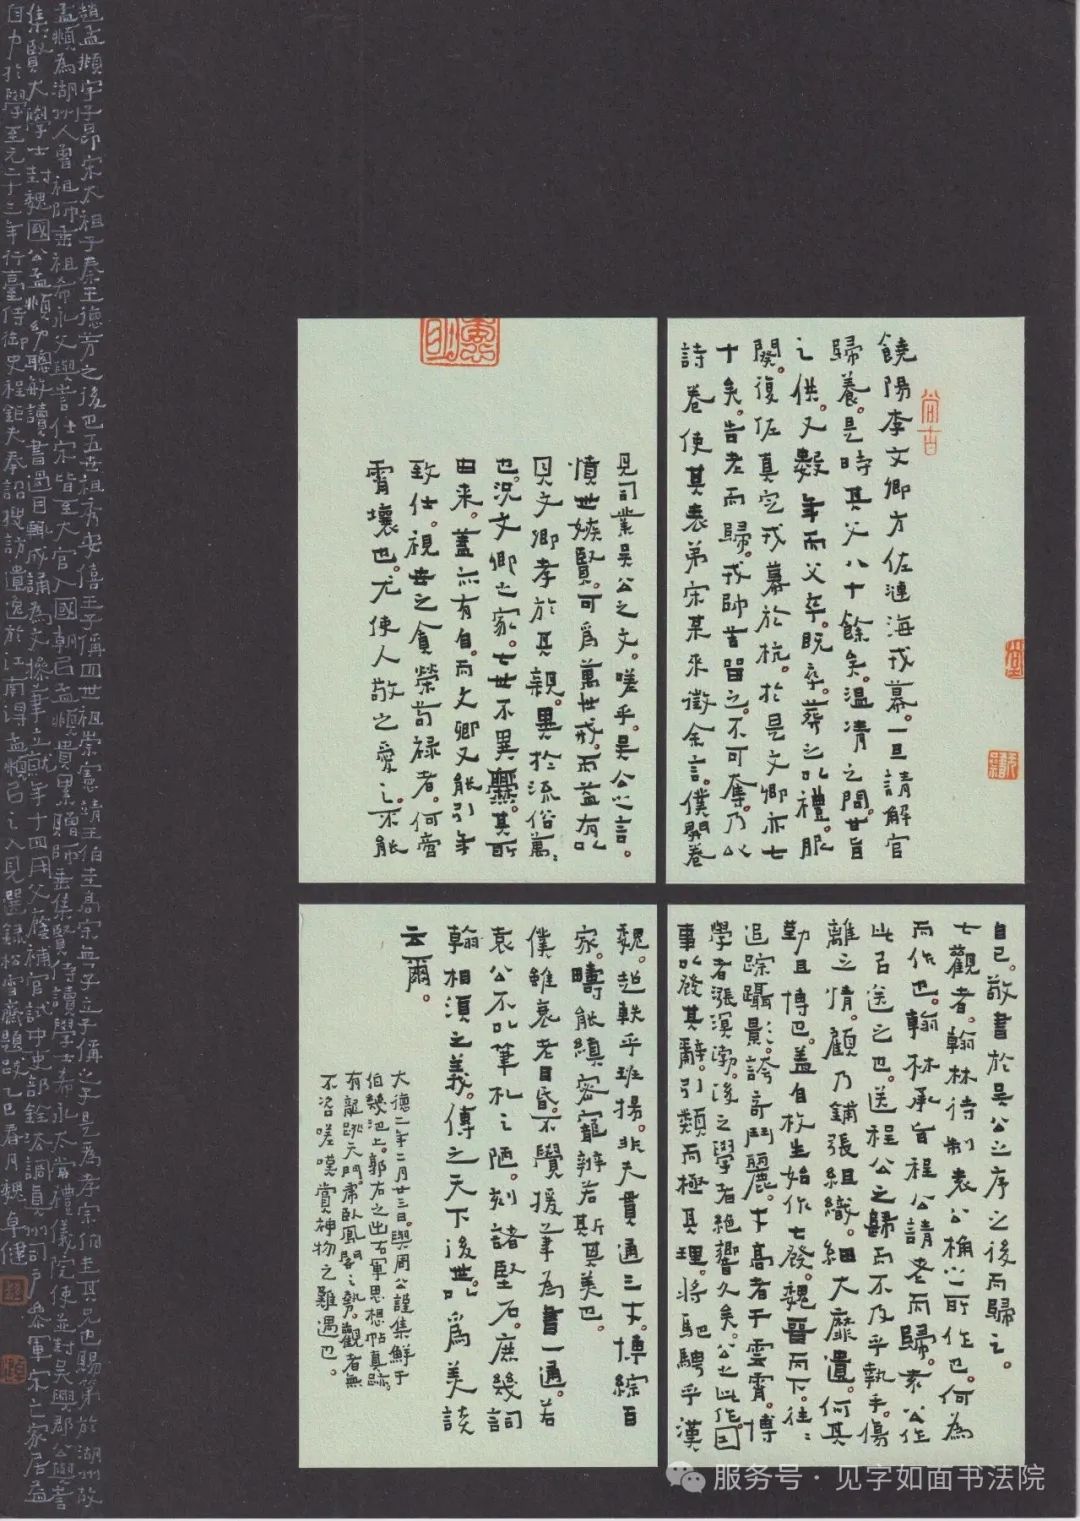 饒陽李文卿方佐漣海戎幕。一旦請解官
歸養。是時其父八十餘矣。溫凊之間。甘旨
之供。又數年而父卒。既卒。葬之以禮。服
闋。復佐真定戎幕於杭。於是文卿亦七
十矣。告老而歸。戎帥苦留之。不可奪。乃以
詩卷使其表弟宋某來徵余言。僕開卷
見司業吳公之文。嗟乎。吳公之言。
憤世嫉賢。可爲萬世戒。而益有以
見文卿孝於其親。異於流俗萬〻
也。況文卿之家。七世不異爨。其所
由来。蓋亦有自。而文卿又能引年
致仕。視世之貪榮苟禄者。何啻
霄壤也。尤使人敬之愛之。不能
自已。敬書於吳公之序之後而歸之。
七觀者。翰林待制袁公桷之所作也。何為
而作也。翰林承旨程公請老而歸。袁公作
此以送之也。送程公之歸而不及乎執手。傷
離之情。顧乃鋪張組織。細大靡遺。何其
勤且博也。蓋自枚生始作七發。魏晉而下。往〻
追踪躡景。誇奇鬥麗。才高者干雲霄。博
學者漲溟渤。後之學者絶響久矣。公之此作。因
事以發其辭。引類而極其理。將馳騁乎漢
魏。超軼乎班揚。非夫貫通三才。博綜百
家。疇能縝密寵辨若斯其美也。
僕雖衰老目昏。不覺援筆為書一通。若
袁公不以筆札之陋。刻諸堅石。庶幾詞
翰相須之義。傳之天下後世。以爲美談
云爾。
大德二年二月廿三日。與周公謹集鮮于
伯幾池上。郭右之出右軍思想帖真跡。
有龍跳天門。虎臥鳳閣之勢。觀者無
不咨嗟嘆賞神物之難遇也。
趙孟頫字子昂宋太祖子秦王德芳之後也五世祖秀安僖王子偁四世祖崇憲靖王伯圭高宗無子立子偁之子是為孝宗伯圭其兄也賜第於湖州故
孟頫為湖州人曾祖師垂祖希永父與訔仕宋皆至大官入國朝以孟頫貴累贈師垂集賢侍讀學士希永太常禮儀院使並封吳興郡公與訔
集賢大學士封魏國公孟頫幼聰敏讀書過目輒成誦為文操筆立就年十四用父廕補官試中吏部銓法調真州司戶參軍宋亡家居益
自力於學至元二十三年行臺侍御史程鉅夫奉詔搜訪遺逸於江南得孟頫以之入見選錄松雪齋題跋乙巳春月魏卓健
服务号·见字如面书法院